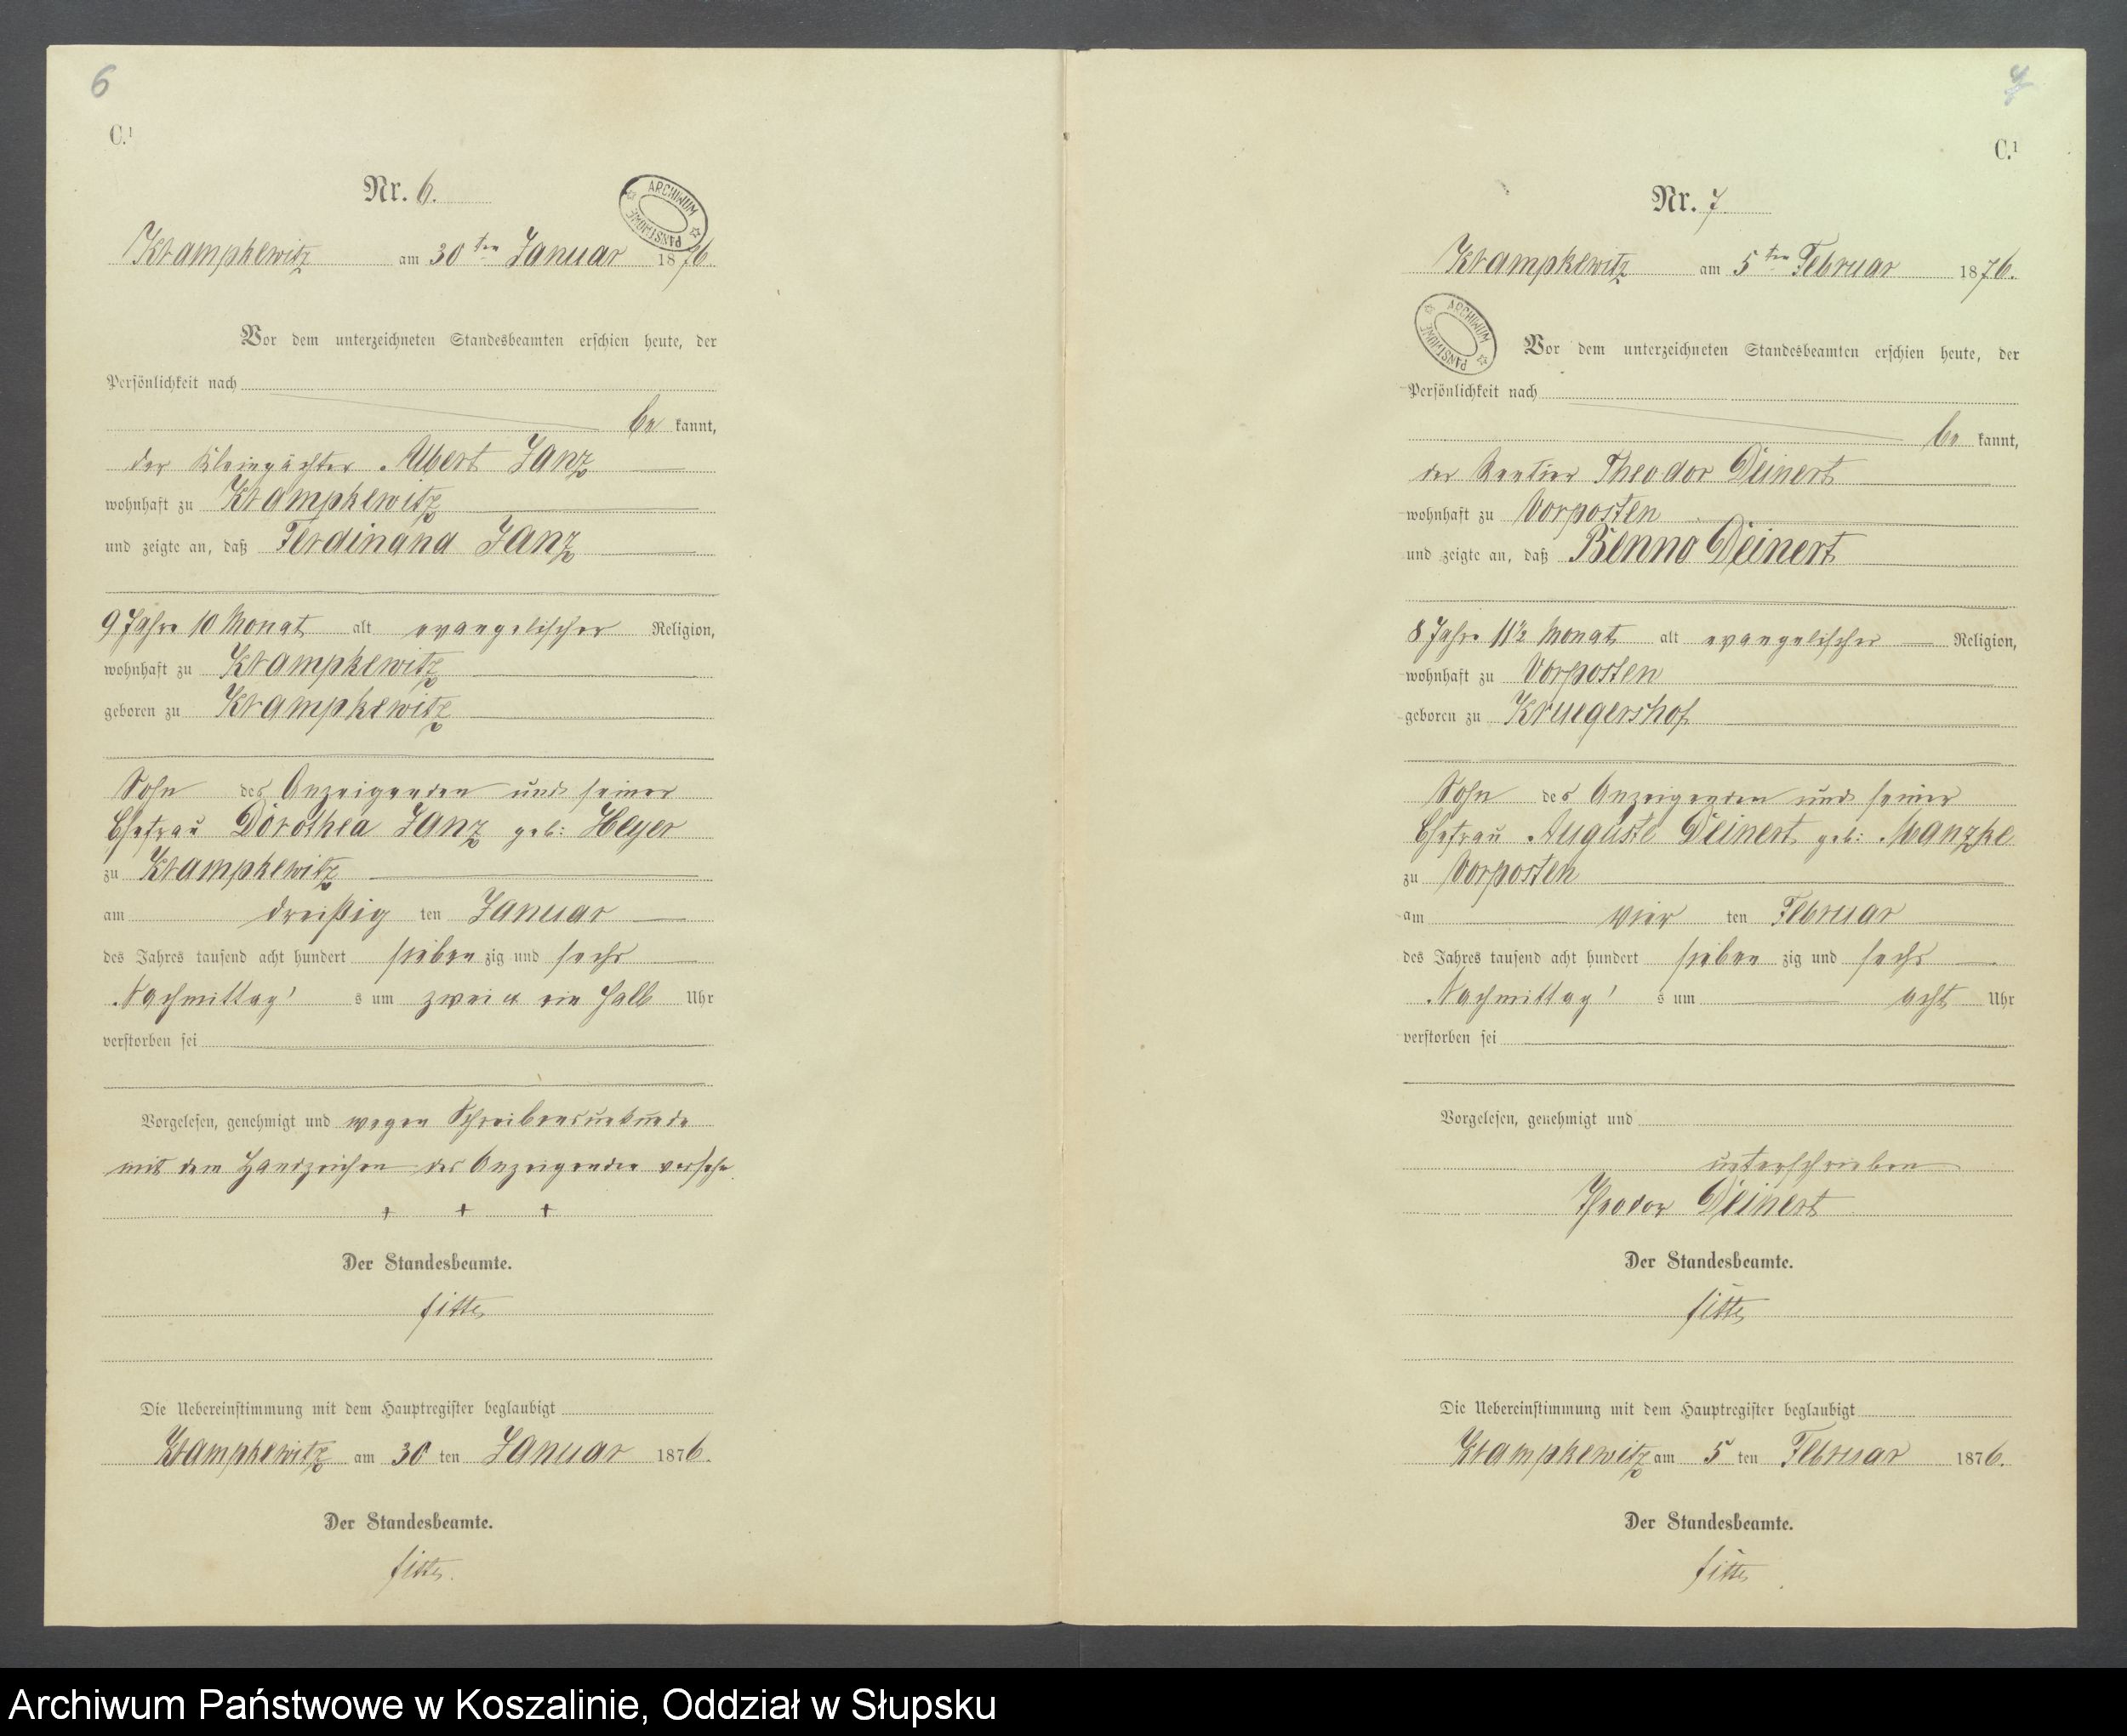 6
C.1
Nr. 6.
ARCHIWUM PAŃSTWOWE
Krampkewitz am 30ten Januar 1876.
Vor dem unterzeichneten Standesbeamten erschien heute, der
Persönlichkeit nach
be kannt,
der Kleinpächter Albert Janz
wohnhaft zu Krampkewitz
und zeigte an, daß Ferdinand Janz
9 Jahre 10 Monat alt evangelischer Religion,
wohnhaft zu Krampkewitz
geboren zu Krampkewitz
Sohn des Anzeigenden und seiner
Ehefrau Dorothea Janz geb: Heyer
zu Krampkewitz
am dreißig ten Januar
des Jahres tausend acht hundert sieben zig und sechs
Nachmittag's um zwei & ein halb Uhr
verstorben sei
Vorgelesen, genehmigt und wegen Schreibensunkunde
mit dem Handzeichen des Anzeigenden versehn.
+ + +
Der Standesbeamte.
Die Uebereinstimmung mit dem Hauptregister beglaubigt
Krampkewitz am 30 ten Januar 1876.
Der Standesbeamte.
7
C.1
Nr. 7.
Krampkewitz am 5ten Februar 1876.
ARCHIWUM PAŃSTWOWE
Vor dem unterzeichneten Standesbeamten erschien heute, der
Persönlichkeit nach
be kannt,
der Rentier Theodor Deinert
wohnhaft zu Vorposten
und zeigte an, daß Benno Deinert
8 Jahre 11½ Monat alt evangelischer Religion,
wohnhaft zu Vorposten
geboren zu Kruegershof
Sohn des Anzeigenden und seiner
Ehefrau Auguste Deinert geb: Manzke
zu Vorposten
am vier ten Februar
des Jahres tausend acht hundert sieben zig und sechs
Nachmittag's um acht Uhr
verstorben sei
Vorgelesen, genehmigt und
unterschrieben
Theodor Deinert
Der Standesbeamte.
Die Uebereinstimmung mit dem Hauptregister beglaubigt
Krampkewitz am 5 ten Februar 1876.
Der Standesbeamte.
Archiwum Państwowe w Koszalinie, Oddział w Słupsku